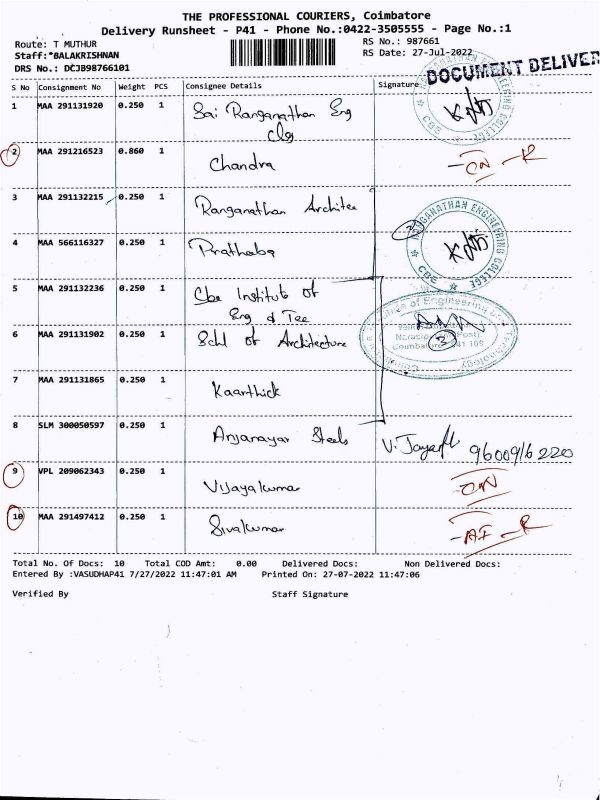 THE PROFESSIONAL COURIERS, Coimbatore
Delivery Runsheet - P41 - Phone No.:0422-3505555 - Page No.:1
Route: T MUTHUR
RS No.: 987661
Staff:*BALAKRISHNAN
RS Date: 27-Jul-2022
DRS No.: DCJB98766101
DOCUMENT DELIVER
S No Consignment No Weight PCS Consignee Details Signature
1 MAA 291131920 0.250 1 Sai Ranganathan Eng
clg
2 MAA 291216523 0.860 1 Chandra
3 MAA 291132215 0.250 1 Ranganathan Architee
4 MAA 566116327 0.250 1 Pratheba
RANGANATHAN ENGINEERING COLLEGE
CBE
5 MAA 291132236 0.250 1 Cbe Institute of
Eng & Tee
6 MAA 291131902 0.250 1 Schl of Architecture
7 MAA 291131865 0.250 1 Kaarthick
8 SLM 300050597 0.250 1 Anjanayar Steels
9600916220
9 VPL 209062343 0.250 1 Vijayakumar
10 MAA 291497412 0.250 1 Sivakumar
Total No. Of Docs: 10 Total COD Amt: 0.00 Delivered Docs: Non Delivered Docs:
Entered By :VASUDHAP41 7/27/2022 11:47:01 AM Printed On: 27-07-2022 11:47:06
Verified By Staff Signature